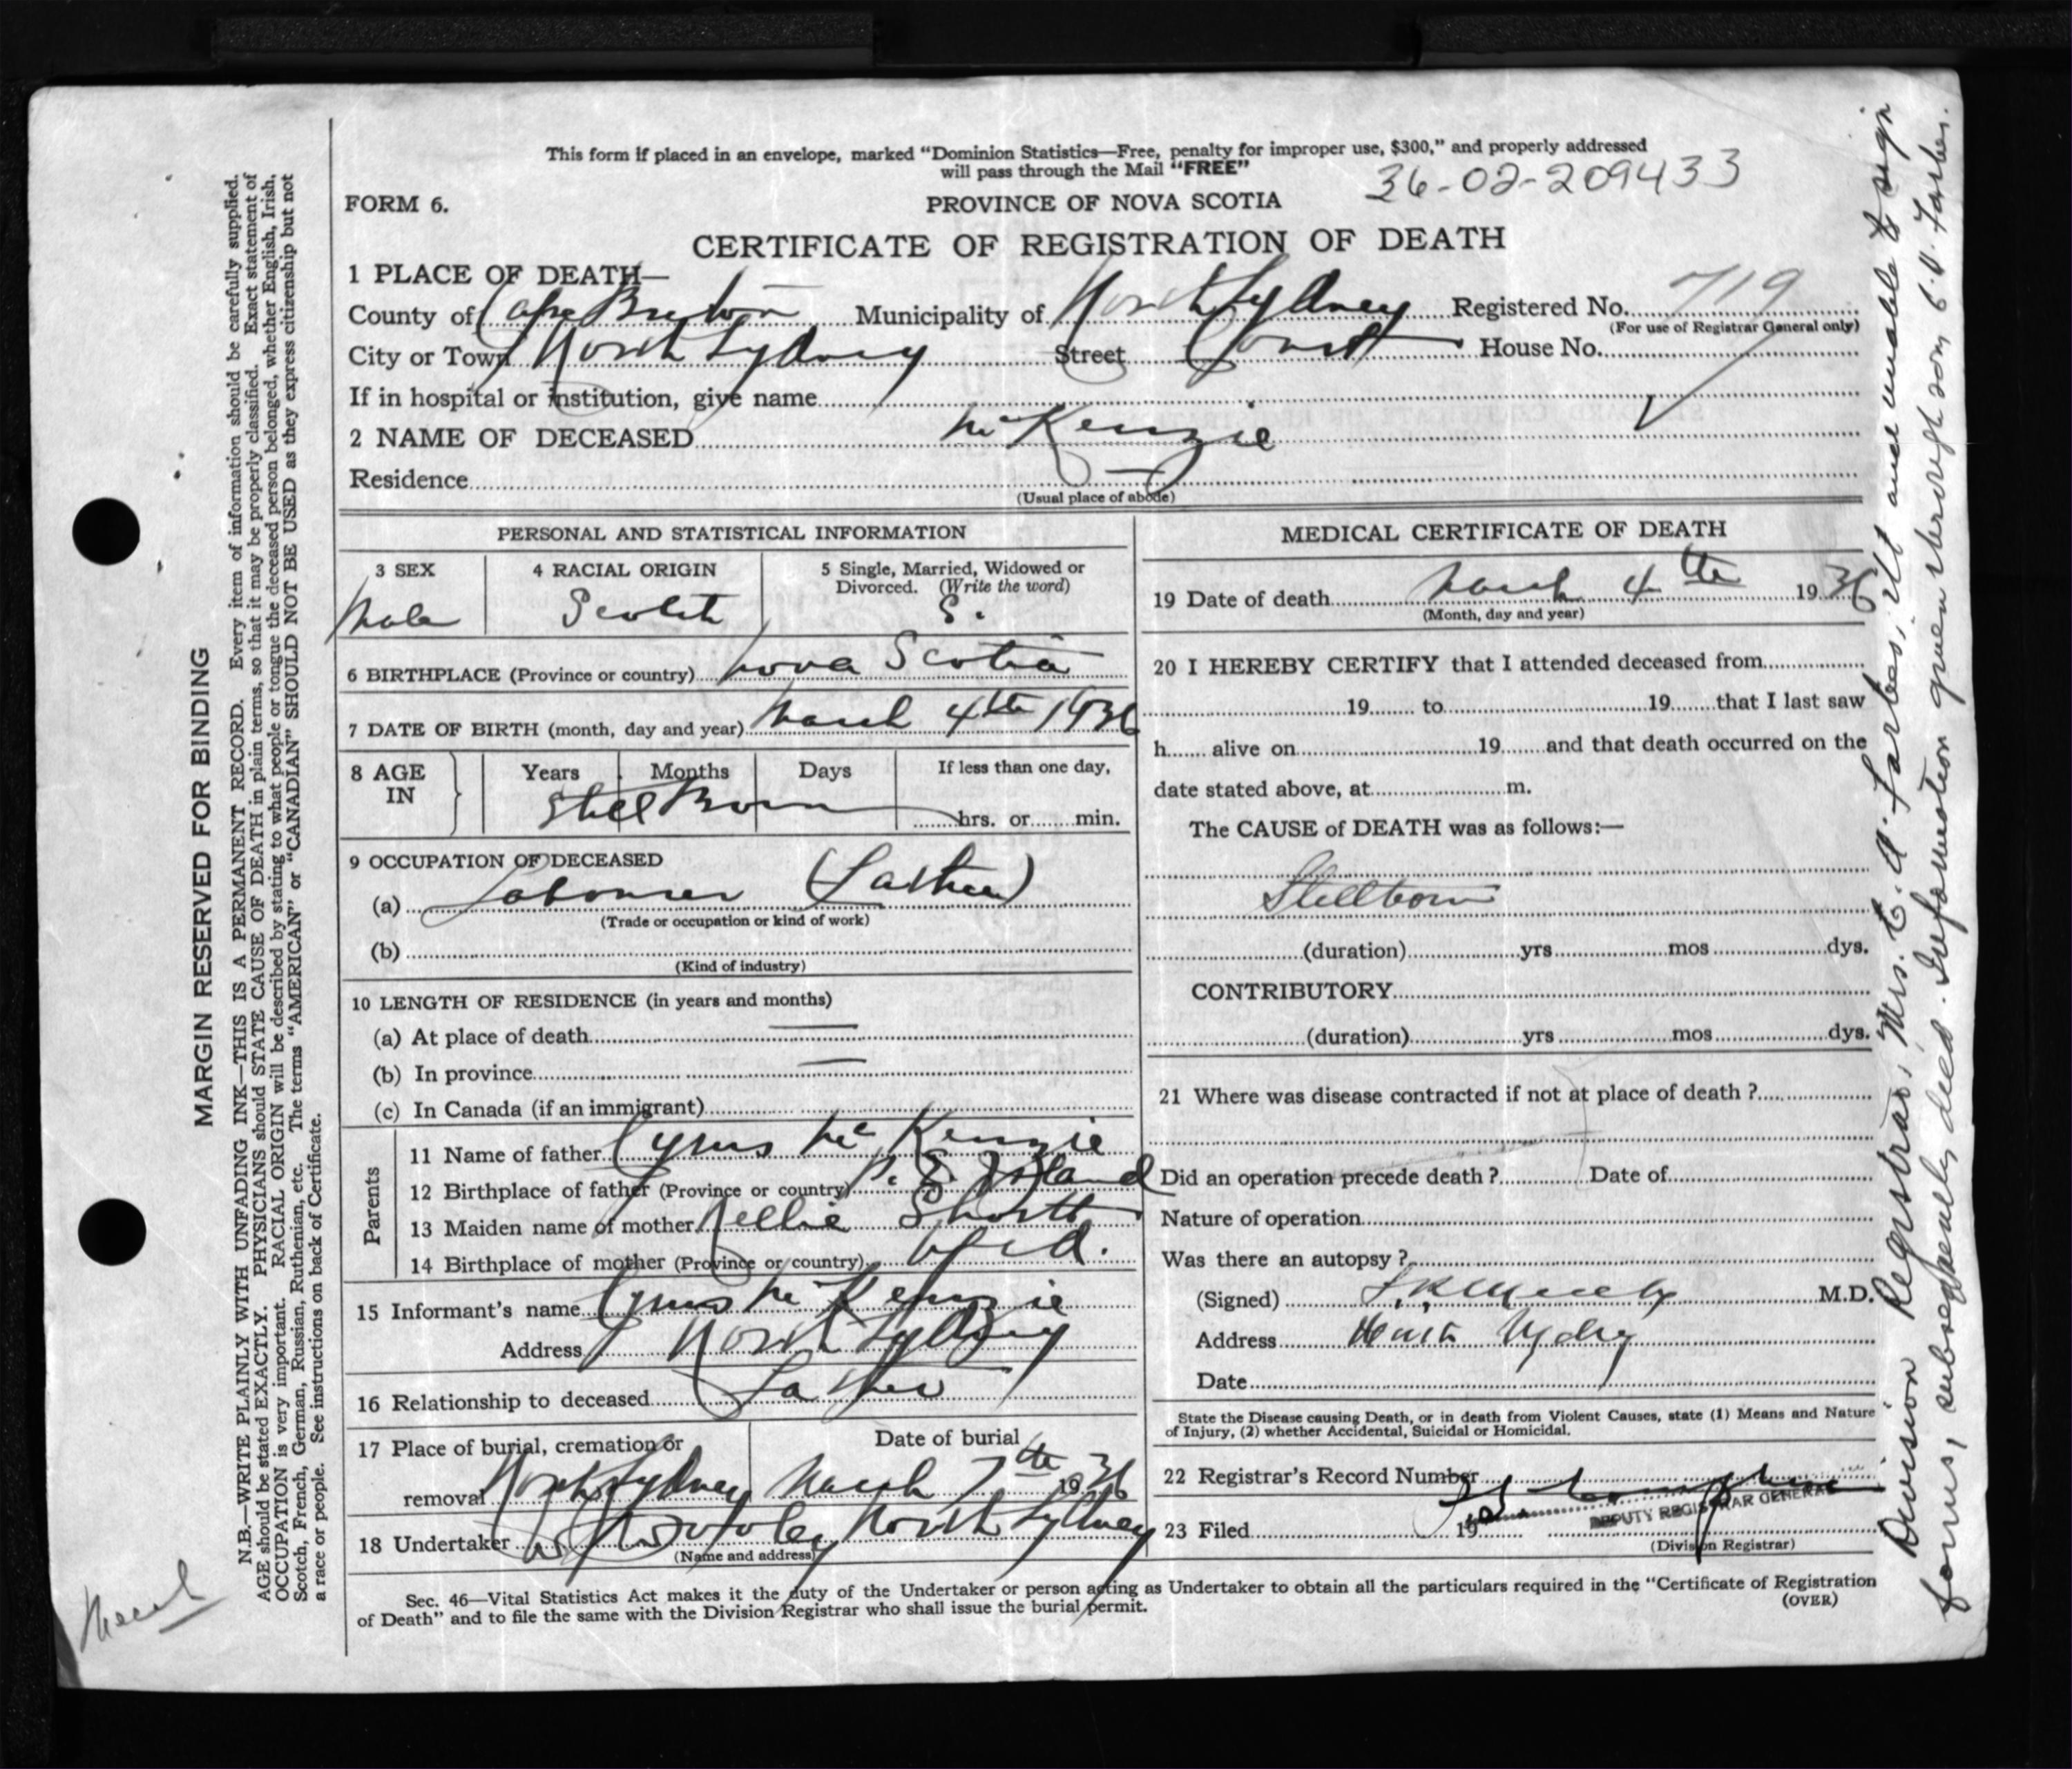 This form if placed in an envelope, marked “Dominion Statistics—Free, penalty for improper use, $300,” and properly addressed
will pass through the Mail “FREE”
36-02-209433
FORM 6.
PROVINCE OF NOVA SCOTIA
CERTIFICATE OF REGISTRATION OF DEATH
1 PLACE OF DEATH—
County of Cape Breton Municipality of North Sydney Registered No. 719
(For use of Registrar General only)
City or Town North Sydney Street Court House No.
If in hospital or institution, give name
2 NAME OF DECEASED McKenzie
Residence —
(Usual place of abode)
PERSONAL AND STATISTICAL INFORMATION
3 SEX
Male
4 RACIAL ORIGIN
Scotch
5 Single, Married, Widowed or
Divorced. (Write the word)
S.
6 BIRTHPLACE (Province or country) Nova Scotia
7 DATE OF BIRTH (month, day and year) March 4th 1936
8 AGE
IN
Years Months Days If less than one day,
Still Born
hrs. or min.
9 OCCUPATION OF DECEASED
(a) Labourer (Father)
(Trade or occupation or kind of work)
(b)
(Kind of industry)
10 LENGTH OF RESIDENCE (in years and months)
(a) At place of death —
(b) In province —
(c) In Canada (if an immigrant)
Parents
11 Name of father Cyrus McKenzie
12 Birthplace of father (Province or country) P. E. Island
13 Maiden name of mother Nellie Shortt
14 Birthplace of mother (Province or country) Nfld.
15 Informant's name Cyrus McKenzie
Address North Sydney
16 Relationship to deceased Father
17 Place of burial, cremation or Date of burial
removal North Sydney March 7th 1936
18 Undertaker North Sydney
(Name and address)
MEDICAL CERTIFICATE OF DEATH
19 Date of death March 4th 1936
(Month, day and year)
20 I HEREBY CERTIFY that I attended deceased from
19 to 19 that I last saw
h alive on 19 and that death occurred on the
date stated above, at m.
The CAUSE of DEATH was as follows:—
Stillborn
(duration) yrs mos dys.
CONTRIBUTORY
(duration) yrs mos dys.
21 Where was disease contracted if not at place of death ?
Did an operation precede death ? Date of
Nature of operation
Was there an autopsy ?
(Signed) M.D.
Address North Sydney
Date
State the Disease causing Death, or in death from Violent Causes, state (1) Means and Nature
of Injury, (2) whether Accidental, Suicidal or Homicidal.
22 Registrar's Record Number
DEPUTY REGISTRAR GENERAL
23 Filed 19
(Division Registrar)
Sec. 46—Vital Statistics Act makes it the duty of the Undertaker or person acting as Undertaker to obtain all the particulars required in the “Certificate of Registration
of Death” and to file the same with the Division Registrar who shall issue the burial permit.
(OVER)
MARGIN RESERVED FOR BINDING
N.B.—WRITE PLAINLY WITH UNFADING INK—THIS IS A PERMANENT RECORD. Every item of information should be carefully supplied.
AGE should be stated EXACTLY. PHYSICIANS should STATE CAUSE OF DEATH in plain terms, so that it may be properly classified. Exact statement of
OCCUPATION is very important. RACIAL ORIGIN will be described by stating to what people or tongue the deceased person belonged, whether English, Irish,
Scotch, French, German, Russian, Ruthenian, etc. The terms “AMERICAN” or “CANADIAN” SHOULD NOT BE USED as they express citizenship but not
a race or people. See instructions on back of Certificate.
March
Division Registrar, Mrs. C. A. Forbes, ill and unable to sign
forms, subsequently died. Information given through son C. A. Forbes.